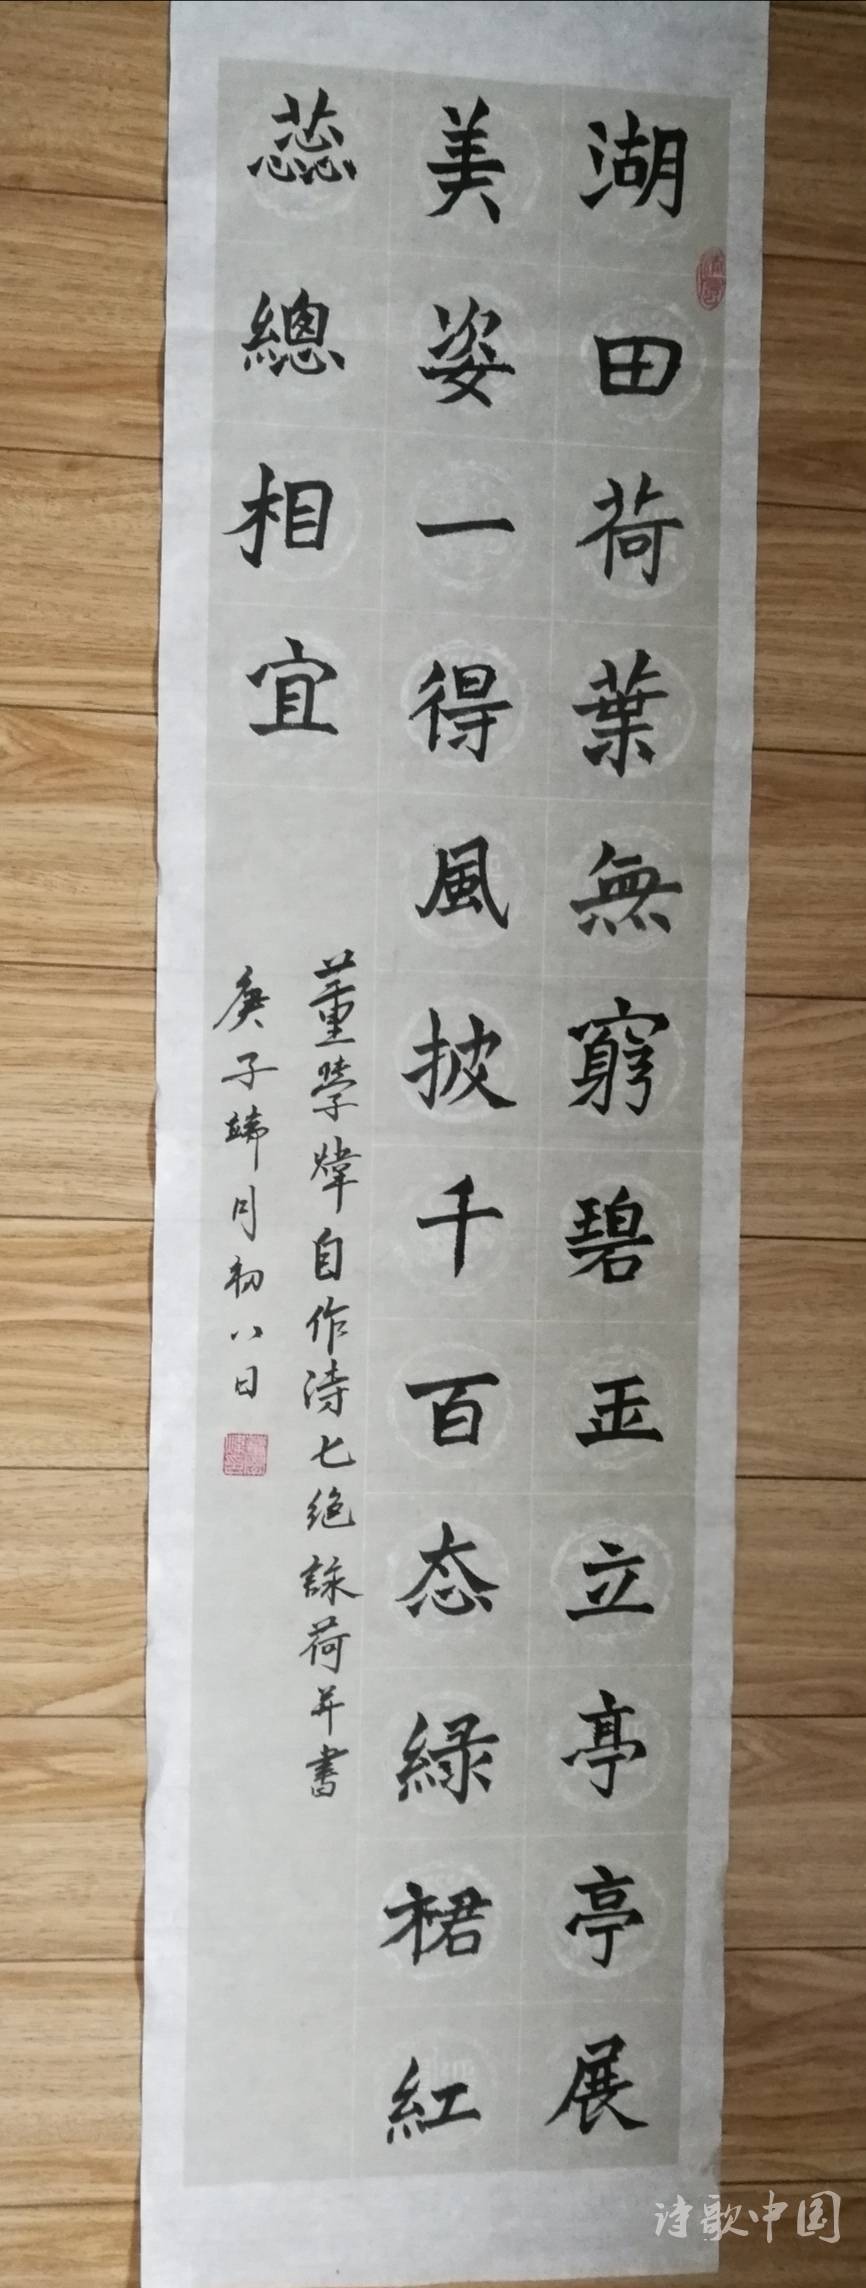 湖田荷葉無窮碧玉立亭亭展
美姿一得風披千百态綠裙紅
蕊總相宜
董學煒自作诗七绝詠荷并書
庚子端月初八日
诗歌中国